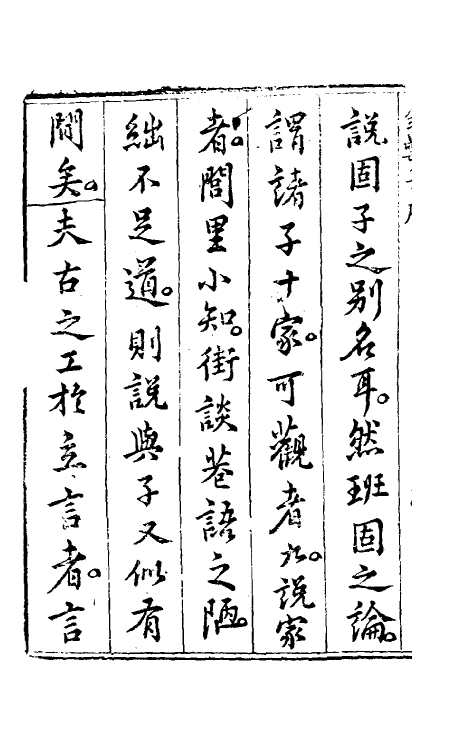 說固子之別名耳。然班固之論。
謂諸子十家。可觀者九。說家
者。閭里小知。街談巷語之陋。
絀不足道。則說與子又似有
間矣。夫古之工於立言者。言